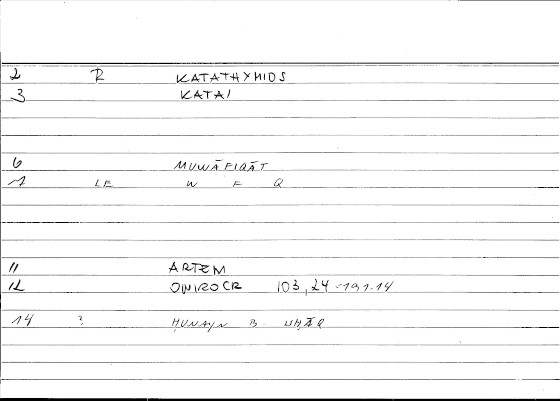 2 R KATATHYMIOS
3 KATAI
6 MUWĀFIQĀT
7 LE W F Q
11 ARTEM
12 ONIROCR 103,24 - 191.14
14 ? ḤUNAYN B. ISḤĀQ